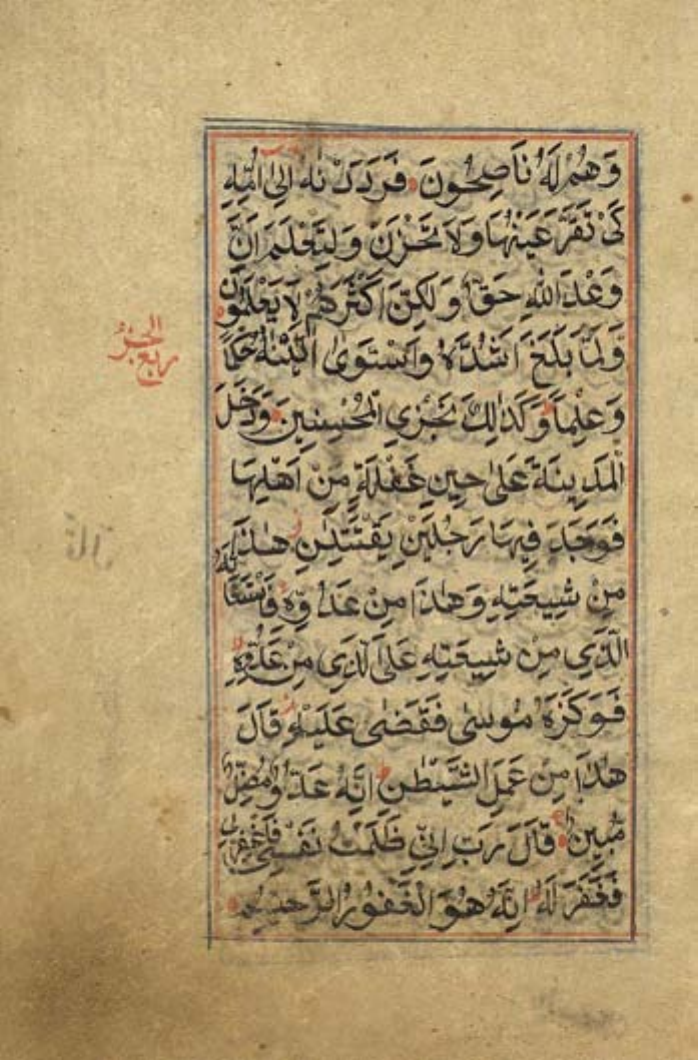 وَهُمْ لَهُ نَاصِحُونَ فَرَدَدْنَٰهُ اِلٰى اُمِّهِ
كَىْ تَقَرَّ عَيْنُهَا وَلَا تَحْزَنْ وَلِتَعْلَمَ اَنَّ
وَعْدَ اللّٰهِ حَقٌّ وَلٰكِنَّ اَكْثَرَهُمْ لَا يَعْلَمُونَ
وَلَمَّا بَلَغَ اَشُدَّهُ وَاسْتَوٰى اٰتَيْنٰهُ حُكْمًا
وَعِلْمًا وَكَذَالِكَ نَجْزِى الْمُحْسِنِينَ وَدَخَلَ
الْمَدِينَةَ عَلٰى حِينِ غَفْلَةٍ مِنْ اَهْلِهَا
فَوَجَدَ فِيهَا رَجُلَيْنِ يَقْتَتِلٰنِ هٰذَا
مِنْ شِيعَتِهِ وَهٰذَا مِنْ عَدُوِّهِ فَاسْتَغَاثَهُ
الَّذِى مِنْ شِيعَتِهِ عَلَى الَّذِى مِنْ عَدُوِّهِ
فَوَكَزَهُ مُوسٰى فَقَضٰى عَلَيْهِ قَالَ
هٰذَا مِنْ عَمَلِ الشَّيْطٰنِ اِنَّهُ عَدُوٌّ مُضِلٌّ
مُبِينٌ قَالَ رَبِّ اِنِّى ظَلَمْتُ نَفْسِى فَاغْفِرْ لِى
فَغَفَرَ لَهُ اِنَّهُ هُوَ الْغَفُورُ الرَّحِيمُ
ربع الحزب